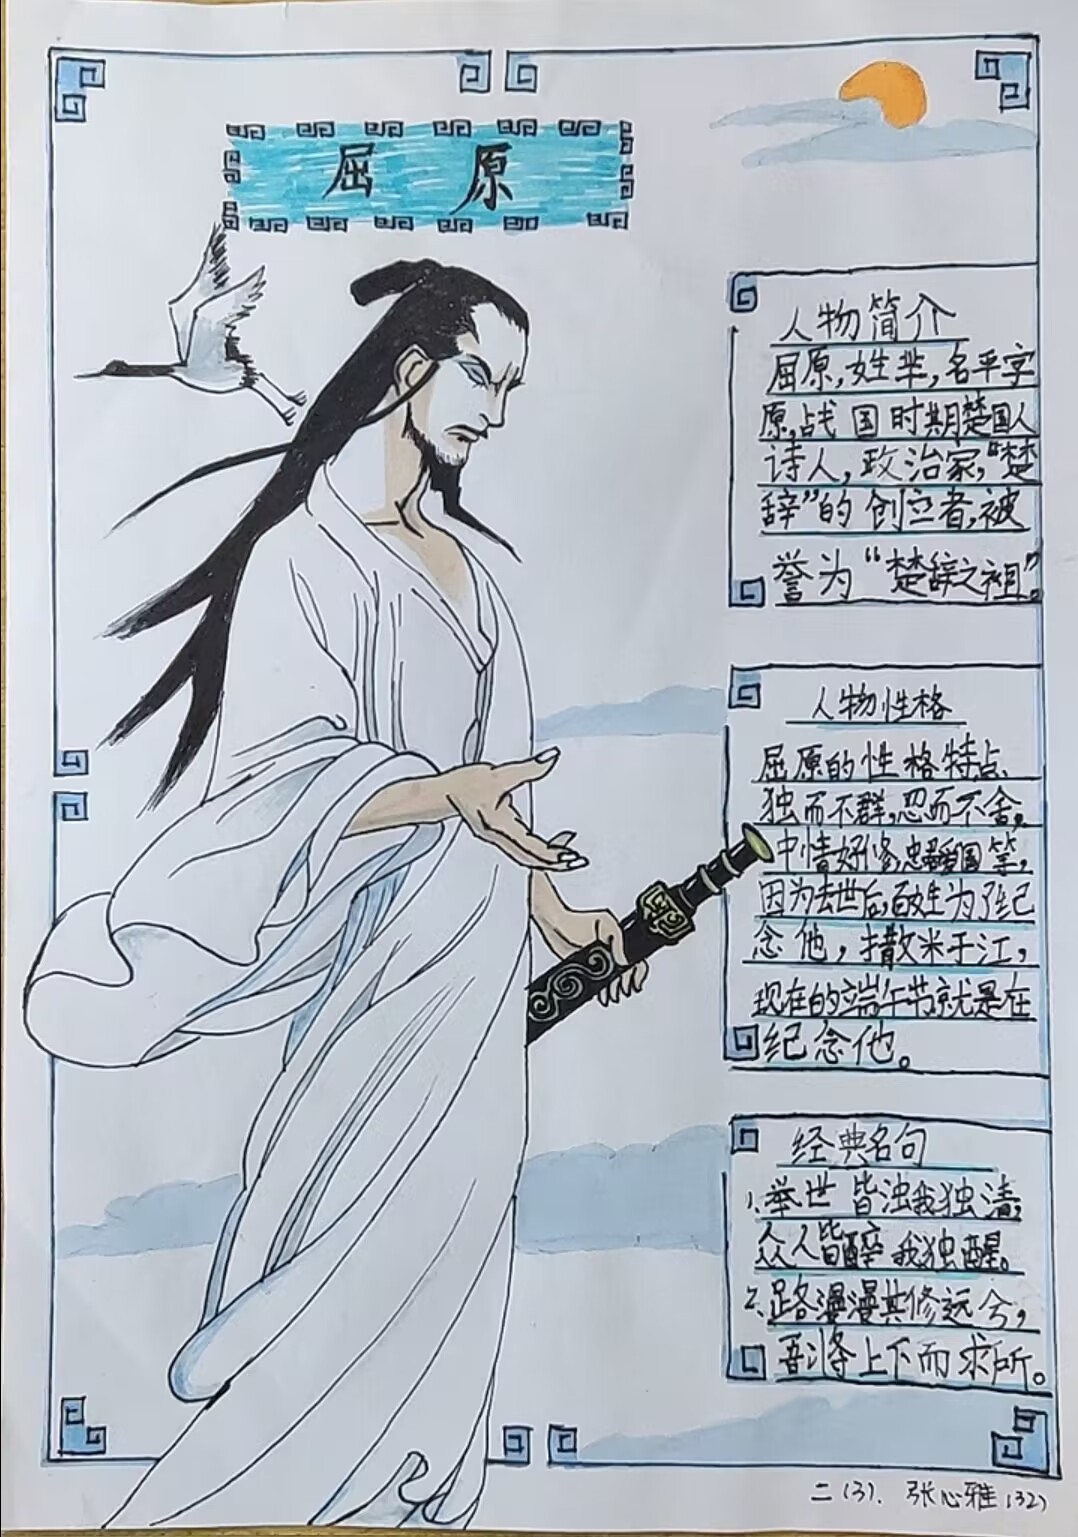 屈原
人物简介
屈原,姓芈,名平字
原,战国时期楚国人
诗人,政治家,“楚
辞”的创立者,被
誉为“楚辞之祖”。
人物性格
屈原的性格特点、
独而不群,忍而不舍,
中情好修,忠君爱国等,
因为去世后,百姓为了纪
念他,撒米于江,
现在的端午节就是在
纪念他。
经典名句
1.举世皆浊我独清,
众人皆醉我独醒。
2.路漫漫其修远兮,
吾将上下而求所。
二(3).张心雅(32)